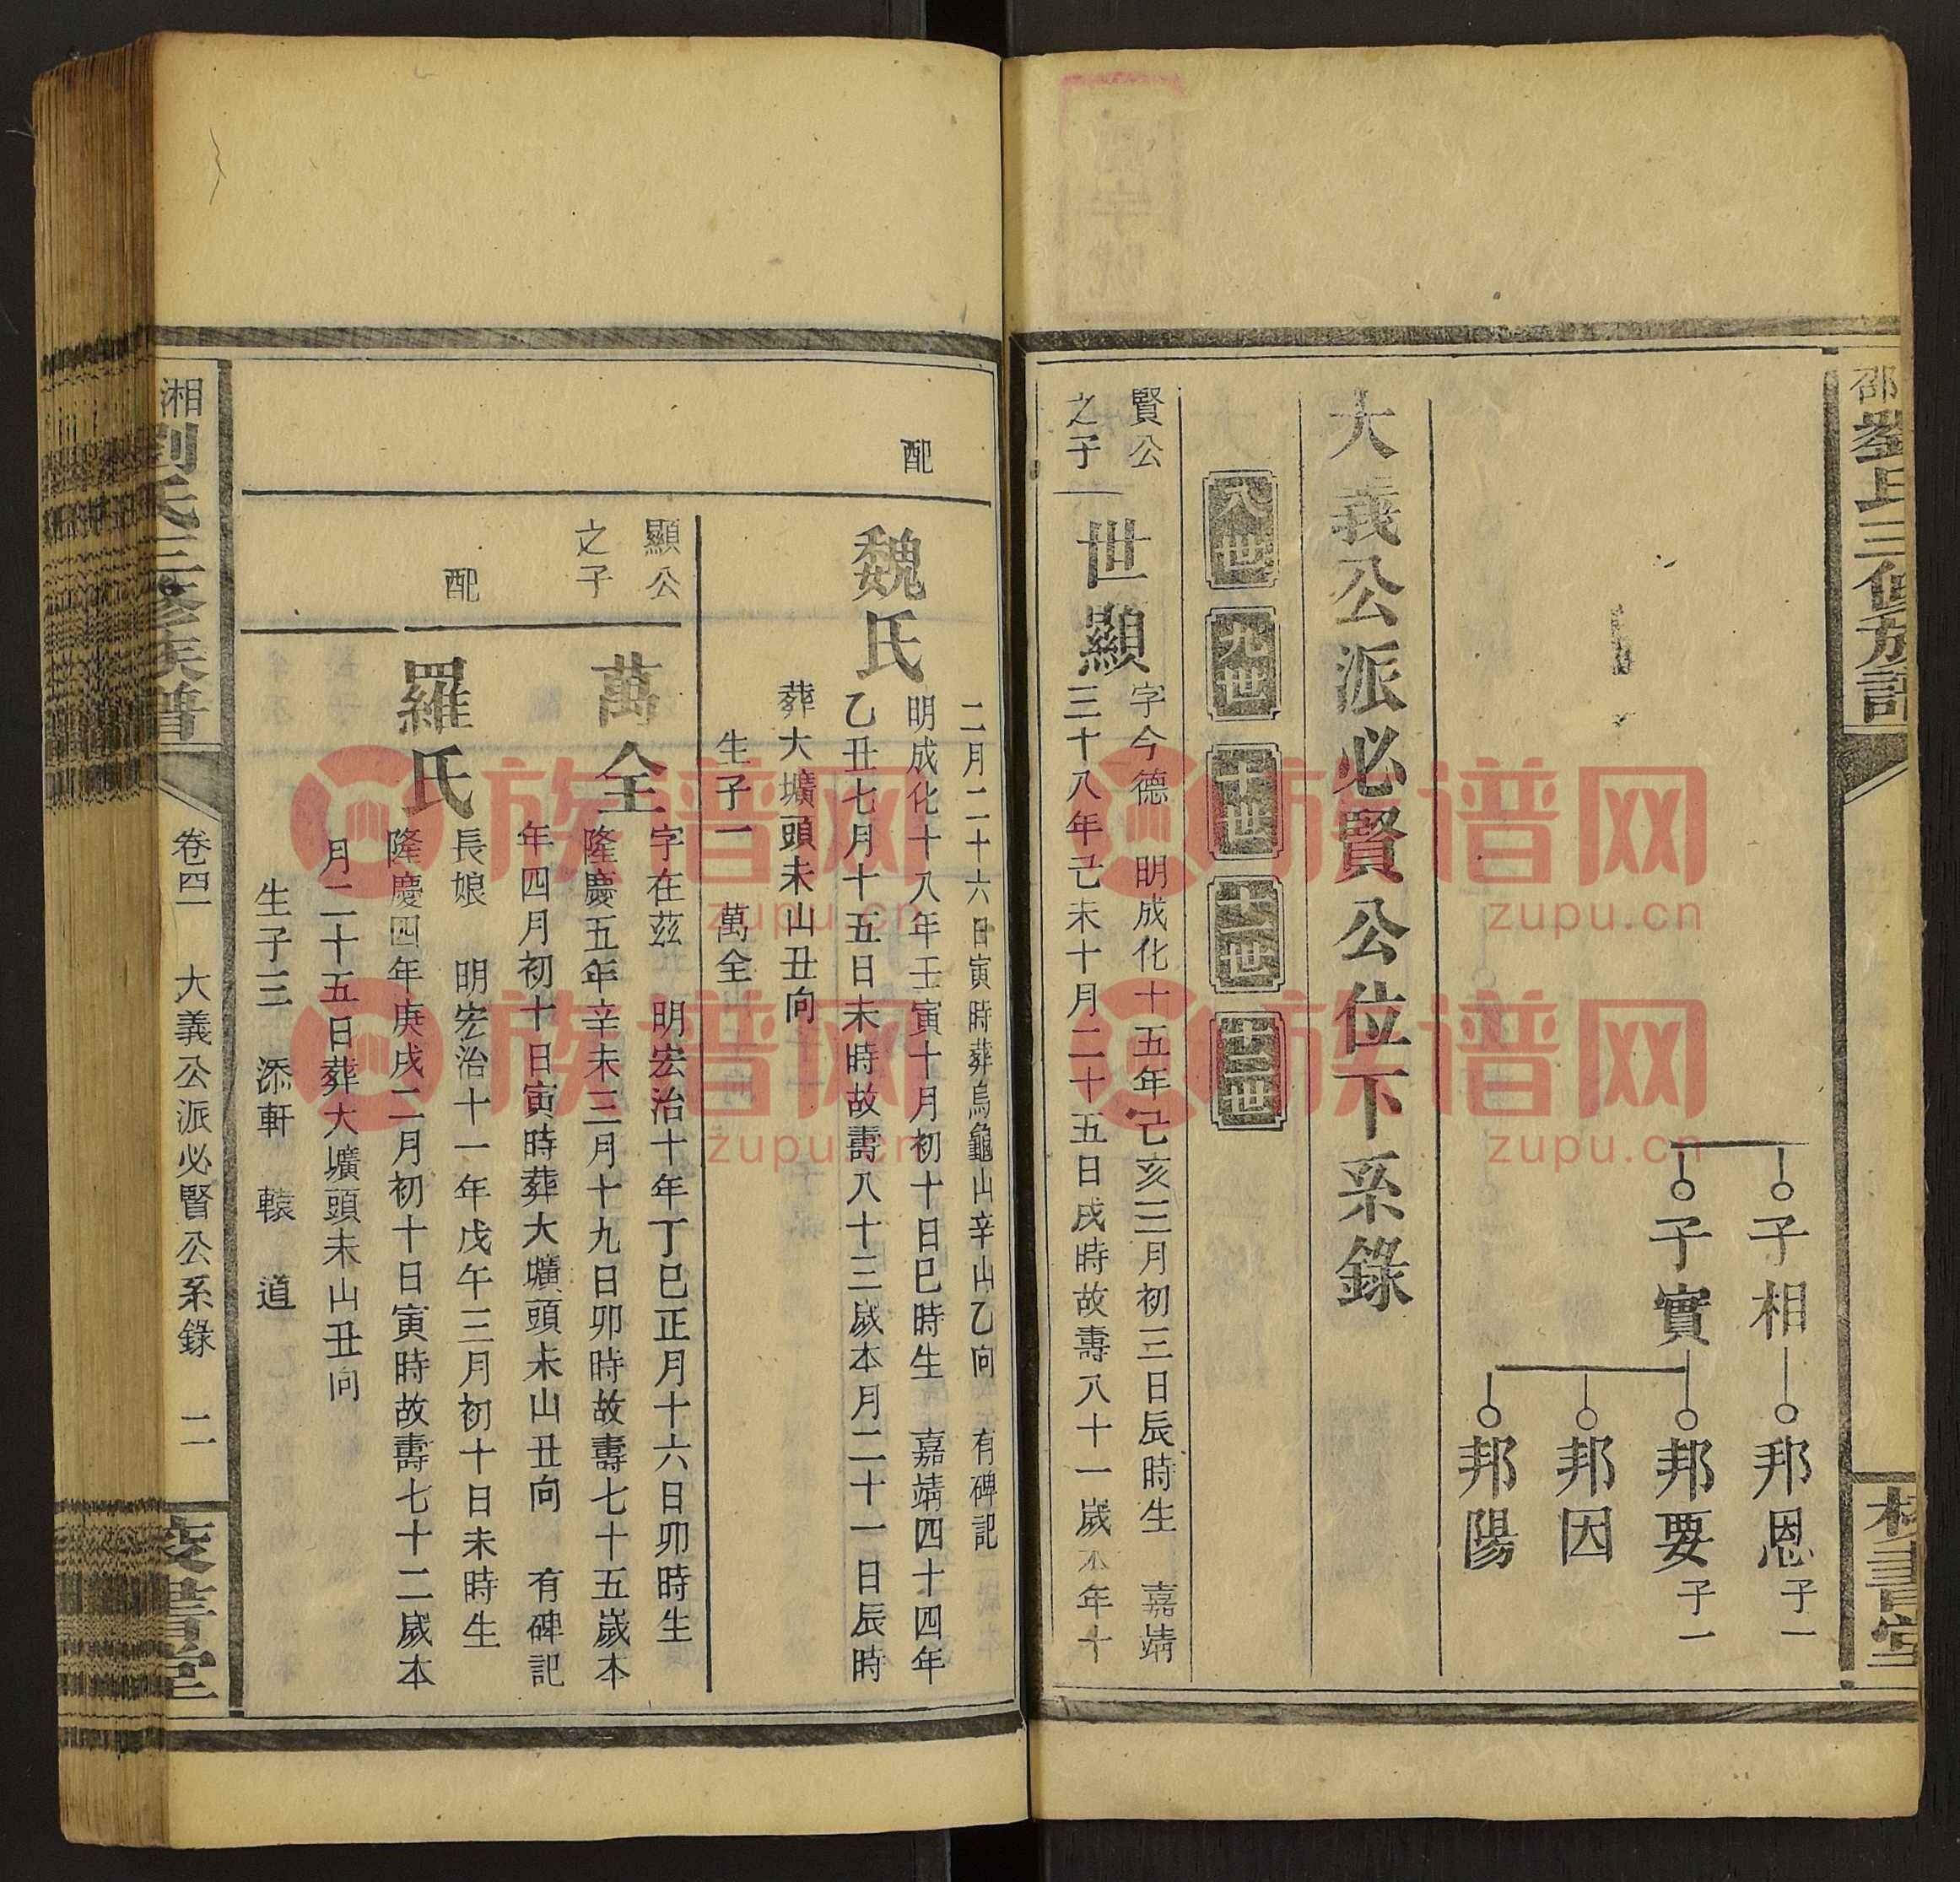 邵劉氏三修族譜
校書堂
子相
邦恩子一
子實
邦要子一
邦因
邦陽
大義公派必賢公位下系錄
八世
九世
十世
十一世
十二世
賢公之子
世顯
字今德 明成化十五年己亥三月初三日辰時生 嘉靖
三十八年己未十月二十五日戌時故壽八十一歲本年十
二月二十六日寅時葬烏龜山辛山乙向 有碑記
配
魏氏
明成化十八年壬寅十月初十日巳時生 嘉靖四十四年
乙丑七月十五日未時故壽八十三歲本月二十一日辰時
葬大壙頭未山丑向
生子一 萬全
顯公之子
萬全
字在茲 明宏治十年丁巳正月十六日卯時生
隆慶五年辛未三月十九日卯時故壽七十五歲本
年四月初十日寅時葬大壙頭未山丑向 有碑記
配
羅氏
長娘 明宏治十一年戊午三月初十日未時生
隆慶四年庚戌二月初十日寅時故壽七十二歲本
月二十五日葬大壙頭未山丑向
生子三 添軒 轅 道
湘劉氏三修族譜
卷四 大義公派必賢公系錄 二
校書堂
族谱网
zupu.cn
族谱网
zupu.cn
族谱网
zupu.cn
族谱网
zupu.cn